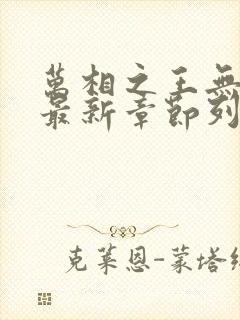 萬相之王無
最新章節列
克萊恩-蒙塔